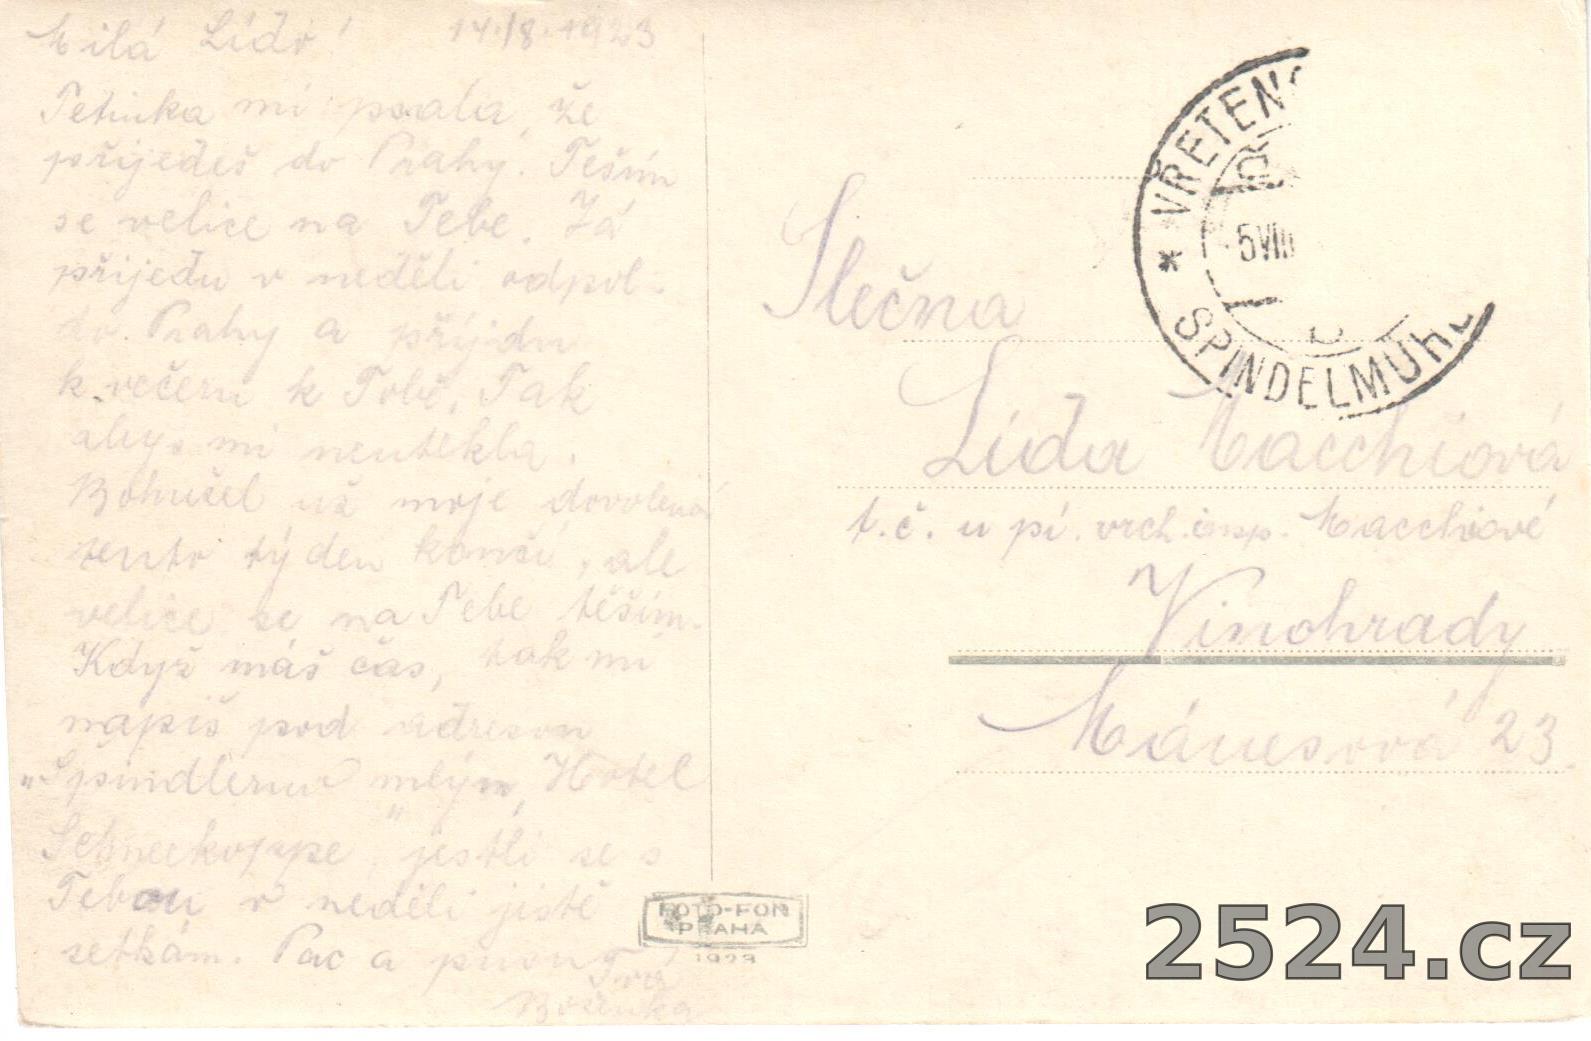 Milá Líďo! 14./8. 1923
Tetinka mi psala, že
přijedeš do Prahy. Těším
se velice na Tebe. Já
přijedu v neděli odpol-
do Prahy a příjdu
k večeru k Tobě. Tak
abys mi neutekla.
Bohužel už moje dovolená
tento týden končí, ale
velice se na Tebe těším.
Když máš čas, tak mi
napiš pod adresou
„Špindlerův mlýn, Hotel
Schneekoppe", jestli se s
Tebou v neděli jistě
setkám. Pac a
Tvá
Boženka
VŘETENO
SPINDELMÜH
5 VIII
Slečna
Líďa Macchiová
t. č. u pí. vrch. insp. Macchiové
Vinohrady
Mánesová 23.
FOTO-FON
PRAHA
1923
2524.cz